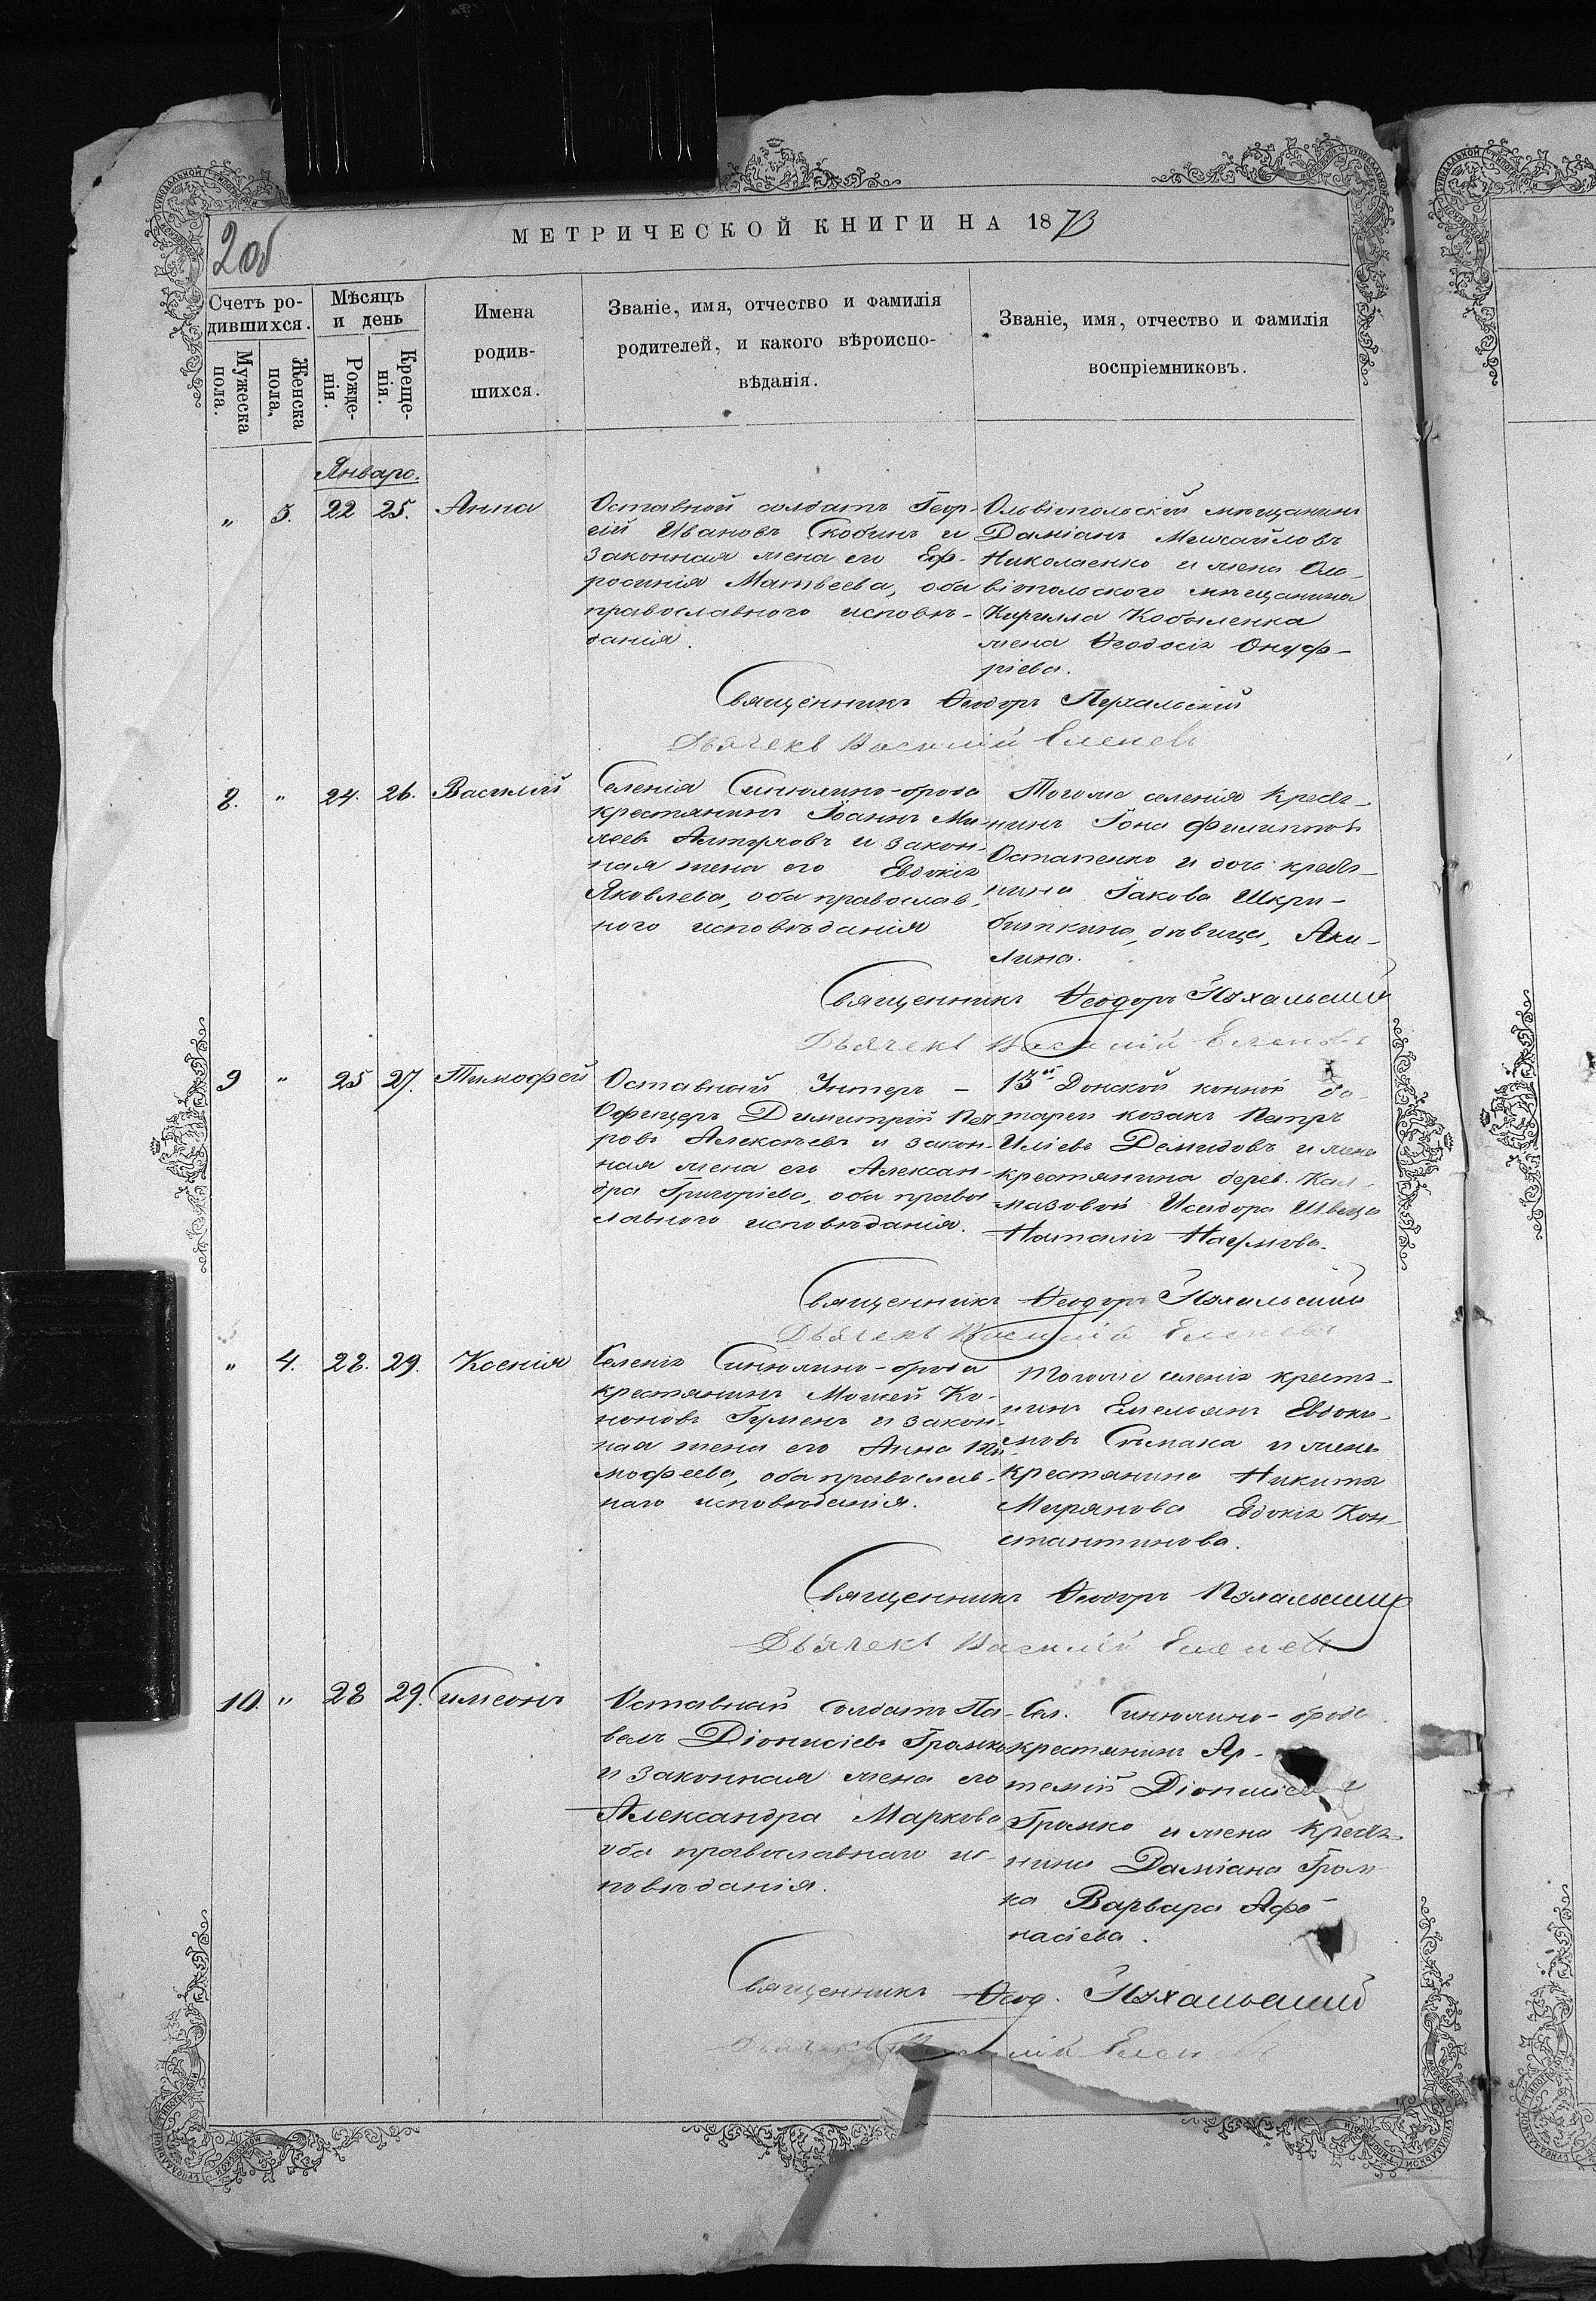 2об
МЕТРИЧЕСКОЙ КНИГИ НА 1873
Счетъ ро-
дившихся.
Мужеска пола.
Женска пола,
Мѣсяцъ
и день
Рожде-
нія.
Креще-
нія.
Имена
родив-
шихся.
Званіе, имя, отчество и фамилія
родителей, и какого вѣроиспо-
вѣданія.
Званіе, имя, отчество и фамилія
воспріемниковъ.
Январь.
" 3. 22 25. Анна
Оставной солдатъ Геор-
гій Ивановъ Скобинъ и
законная жена его Еф-
росинія Матвеева, оба
православного исповѣ-
данія.
Ольвіопольскій мещанинъ
Даміанъ Михайловъ
Николаенко и жена Оль-
віопольского мещанина
Кирилла Кобыленка
жена Ѳеодосія Онуф-
ріева.
Священникъ Ѳеодоръ Пухальскій
Дьячекъ Василій Еленевъ
8. " 24. 26. Василій
Селенія Синюхино-брода
крестянинъ Іоаннъ Ми-
хеевъ Алтуховъ и закон-
ная жена его Евдокія
Яковлева, оба православ-
ного исповѣданія
Тогоже селенія кресть-
нинъ Іона Филипповъ
Остапенко и дочь кресть-
нина Іакова Шкри-
биткина, дѣвица, Аки-
лина.
Священникъ Ѳеодоръ Пухальскій
Дьячекъ Василій Еленевъ
9 " 25 27. Тимофей
Оставный Унтеръ-
Офицеръ Димитрій Пет-
ровъ Алексеевъ и закон-
ная жена его Алексан-
дра Григоріева, оба правос-
лавного исповѣданія.
13й Донской конной ба-
тареи козакъ Петръ
Иліевъ Демидовъ и жена
крестянина дерев. Кал-
мазовой Исидора Швеца
Наталія Наумова.
Священникъ Ѳеодоръ Пухальскій
Дьячекъ Василій Еленевъ
" 4. 28. 29. Ксенія
Селенія Синюхино-брода
крестянинъ Моисей Ко-
ноновъ Гуменъ и закон-
ная жена его Анна Ти-
мофеева, оба православ-
наго исповѣданія.
Тогоже селенія кресть-
нинъ Емельянъ Евдоки-
мовъ и жена
крестянина Никиты
Мирянова Евдокія Кон-
стантинова.
Священникъ Ѳеодоръ Пухальскій
Дьячекъ Василій Еленевъ
10. " 28 29. Симеонъ
Оставный солдатъ Па-
велъ Діонисіевъ Громко
и законная жена его
Александра Маркова,
оба православнаго ис-
повѣданія.
Сел. Синюхино-брода
крестянинъ Ар-
темій Діонисіевъ
Громко и жена кресть-
нина Даміана Гром-
ка Варвара Афа-
насіева.
Священникъ Ѳеод. Пухальскій
Дьячекъ Василій Еленевъ